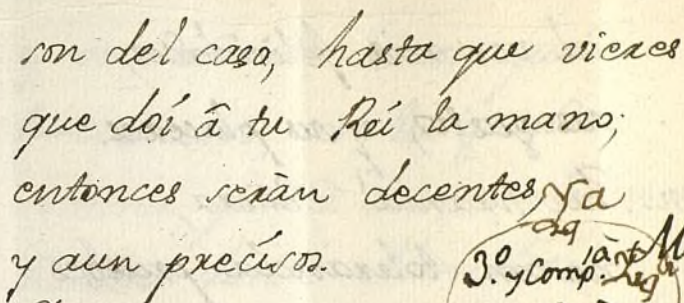 son del caso, hasta que vieres
que doí â tu Reí la mano;
entonces seràn decentes, Ya
y aun precísos.
3.º y Comp.ıà